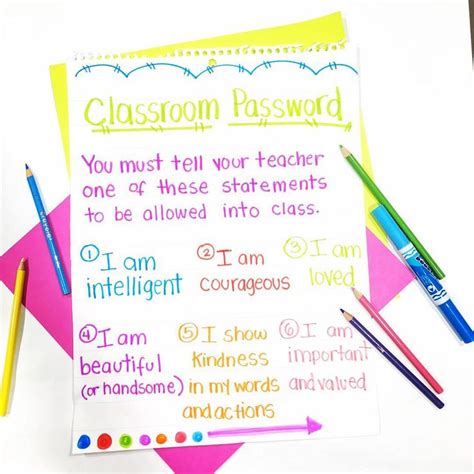 Classroom Password
You must tell your teacher
one of these statements
to be allowed into class.
① I am
intelligent
② I am
courageous
③ I am
loved
④ I am
beautiful
(or handsome)
⑤ I show
kindness
in my words
and actions
⑥ I am
important
and valued